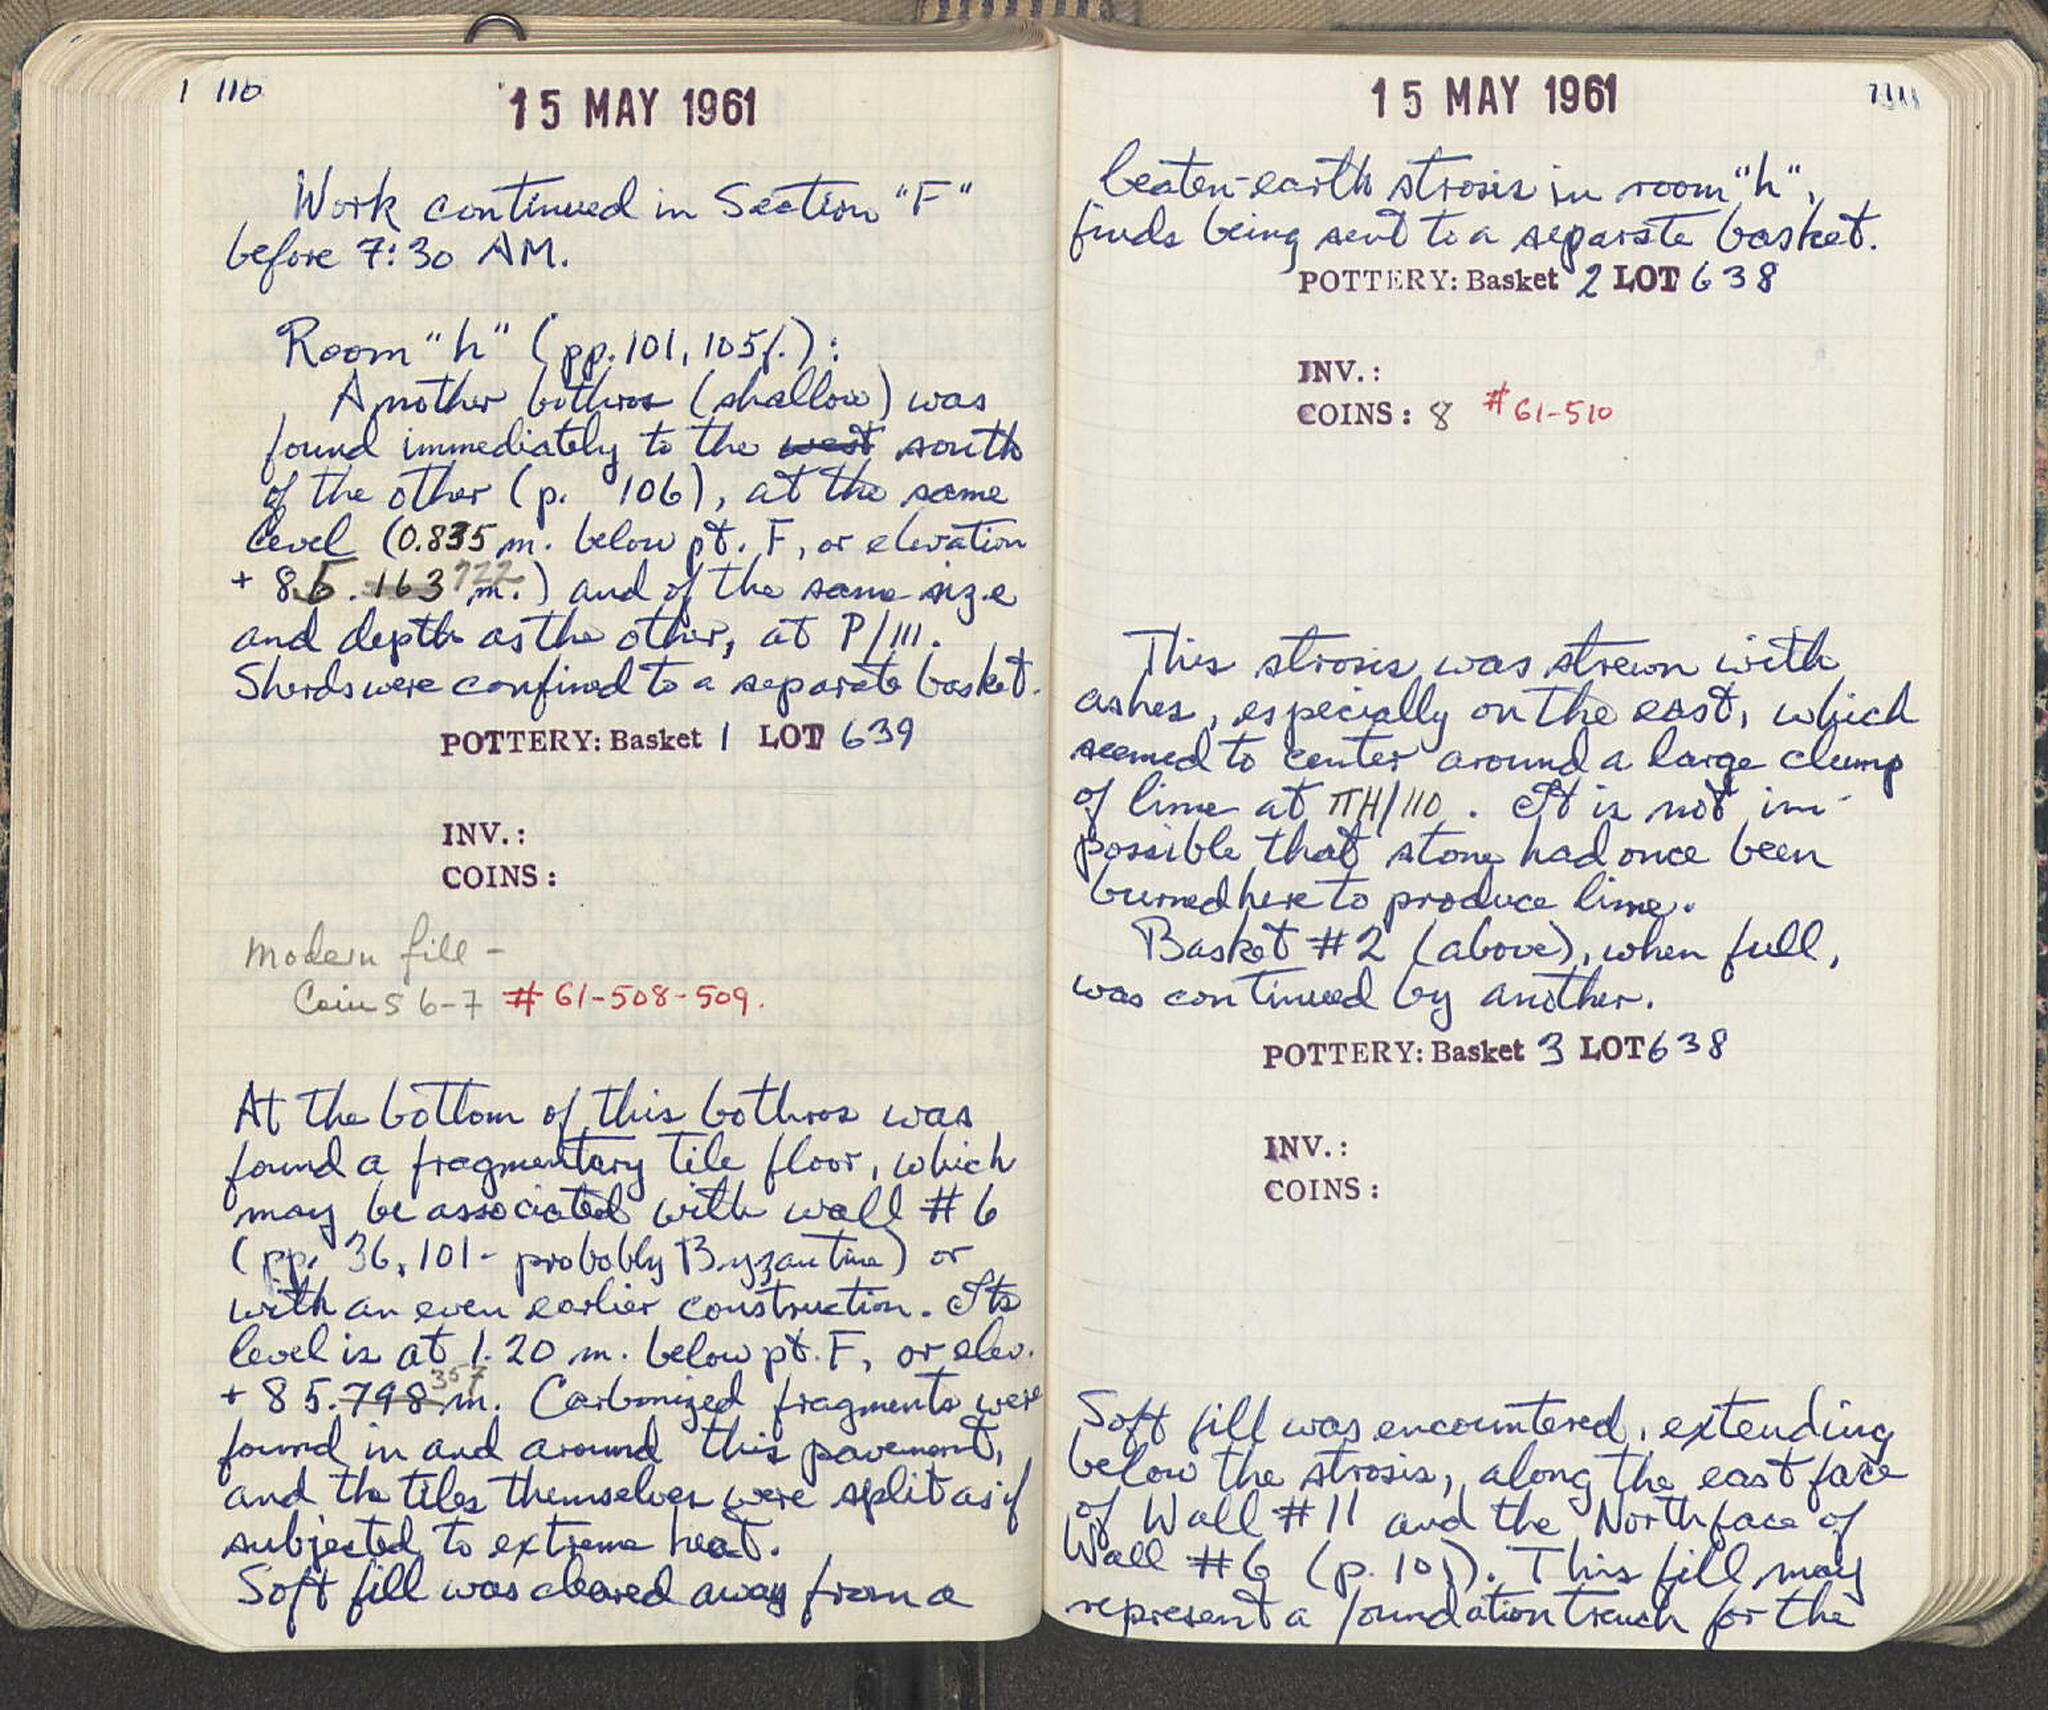 1 110
15 MAY 1961
Work continued in Section "F"
before 7:30 AM.
Room "h" (pp. 101, 105f.):
Another bothros (shallow) was
found immediately to the west south
of the other (p. 106), at the same
level (0.835 m. below pt. F, or elevation
+ 85.163 722 m.) and of the same size
and depth as the other, at P/111.
Sherds were confined to a separate basket.
POTTERY: Basket 1 LOT 639
INV.:
COINS:
Modern fill -
Coins 6-7 # 61-508-509.
At the bottom of this bothros was
found a fragmentary tile floor, which
may be associated with wall #6
(pp. 36, 101 - probably Byzantine) or
with an even earlier construction. Its
level is at 1.20 m. below pt. F, or elev.
+ 85.798 357 m. Carbonized fragments were
found in and around this pavement,
and the tiles themselves were split as if
subjected to extreme heat.
Soft fill was cleared away from a
15 MAY 1961
beaten-earth strosis in room "h",
finds being sent to a separate basket.
POTTERY: Basket 2 LOT 638
INV.:
COINS: 8 # 61-510
This strosis was strewn with
ashes, especially on the east, which
seemed to center around a large clump
of lime at ΠH/110. It is not im-
possible that stone had once been
burned here to produce lime.
Basket #2 (above), when full,
was continued by another.
POTTERY: Basket 3 LOT 638
INV.:
COINS:
Soft fill was encountered, extending
below the strosis, along the east face
of Wall #11 and the North face of
Wall #6 (p. 101). This fill may
represent a foundation trench for the